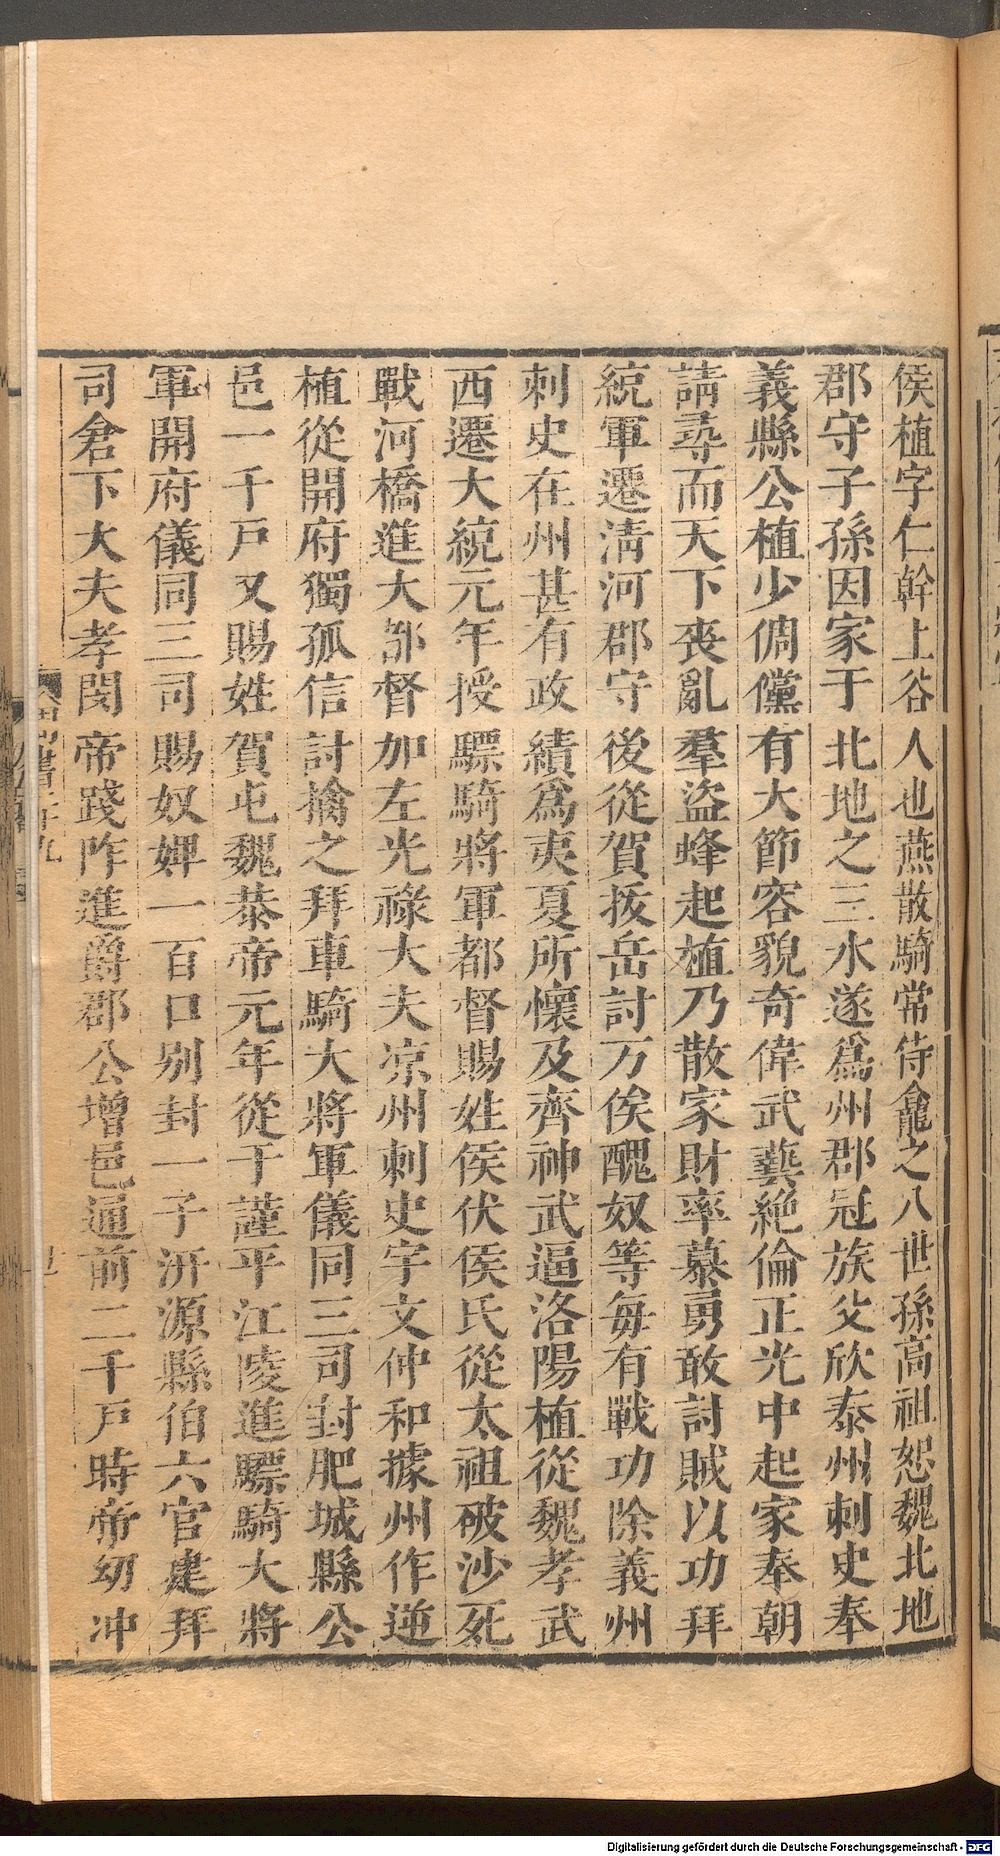 侯植字仁幹上谷人也燕散騎常侍龕之八世孫高祖恕魏北地
郡守子孫因家于北地之三水遂爲州郡冠族父欣泰州刺史奉
義縣公植少倜儻有大節容貌奇偉武藝絶倫正光中起家奉朝
請尋而天下喪亂羣盜蜂起植乃散家財率慕勇敢討賊以功拜
統軍遷清河郡守後從賀拔岳討万俟醜奴等每有戰功除義州
刺史在州甚有政績爲夷夏所懷及齊神武逼洛陽植從魏孝武
西遷大統元年授驃騎將軍都督賜姓侯伏侯氏從太祖破沙苑
戰河橋進大都督加左光祿大夫凉州刺史宇文仲和據州作逆
植從開府獨孤信討擒之拜車騎大將軍儀同三司封肥城縣公
邑一千戸又賜姓賀屯魏恭帝元年從于謹平江陵進驃騎大將
軍開府儀同三司賜奴婢一百口别封一子汧源縣伯六官建拜
司倉下大夫孝閔帝踐阼進爵郡公增邑通前二千戸時帝幼冲
Digitalisierung gefördert durch die Deutsche Forschungsgemeinschaft - DFG